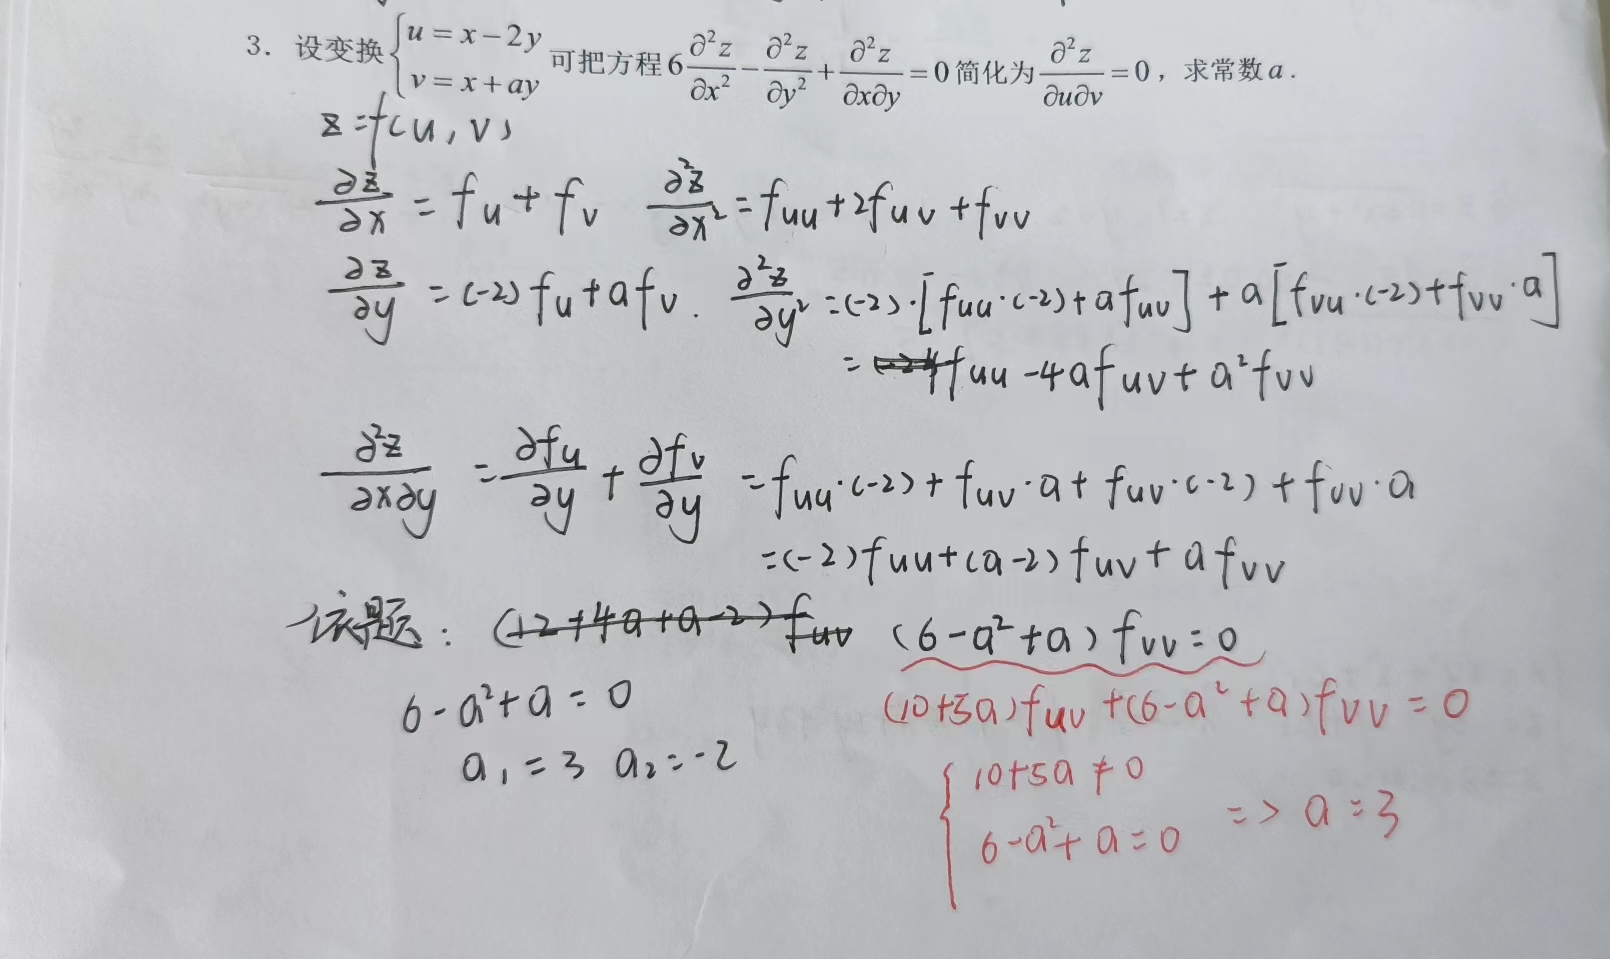 3. 设变换{u=x-2y v=x+ay 可把方程6∂²z/∂x²-∂²z/∂y²+∂²z/∂x∂y=0简化为∂²z/∂u∂v=0，求常数a.
z=f(u,v)
∂z/∂x=fu+fv ∂²z/∂x²=fuu+2fuv+fvv
∂z/∂y=(-2)fu+afv. ∂²z/∂y²=(-2)·[fuu·(-2)+afuv]+a[fvu·(-2)+fvv·a]
=4fuu-4afuv+a²fvv
∂²z/∂x∂y=∂fu/∂y+∂fv/∂y=fuu·(-2)+fuv·a+fuv·(-2)+fvv·a
=(-2)fuu+(a-2)fuv+afvv
依题: (12+4a+a-2)fuv (6-a²+a)fvv=0
6-a²+a=0
a₁=3 a₂=-2
(10+5a)fuv+(6-a²+a)fvv=0
{10+5a≠0
6-a²+a=0 => a=3